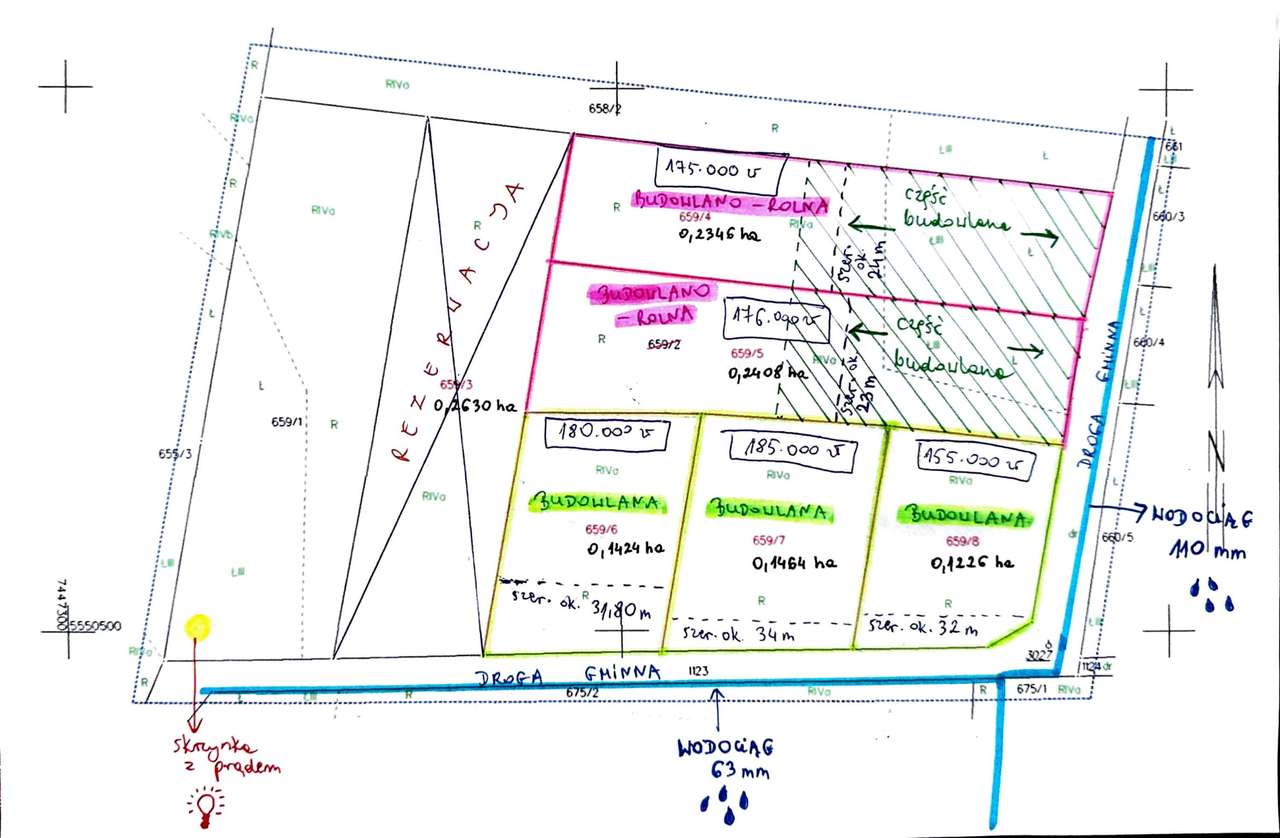 R
RIVa
658/2
R
ŁIII
Ł
Ł
661
ŁIII
RIVb
R
RIVa
R
REZERWACJA
175.000 zł
BUDOWLANO - ROLNA
R
659/4
RIVa
0,2346 ha
część
budowlana
ŁIII
Ł
szer.
ok.
24 m
660/3
RIVb
Ł
ŁIII
BUDOWLANO
- ROLNA
176.000 zł
R
659/2
659/5
0,2408 ha
RIVa
część
budowlana
ŁIII
Ł
szer. ok.
23 m
Ł
660/4
ŁIII
DROGA GMINNA
N
659/3
0,2630 ha
Ł
659/1
R
655/3
RIVa
180.000 zł
RIVa
BUDOWLANA
659/6
0,1424 ha
R
szer. ok. 31,80 m
185.000 zł
RIVa
BUDOWLANA
659/7
0,1464 ha
R
szer. ok. 34 m
155.000 zł
RIVa
BUDOWLANA
659/8
0,1226 ha
R
szer. ok. 32 m
Ł
WODOCIĄG
110 mm
dr
660/5
ŁIII
ŁIII
ŁIII
7447300
5550500
RIVa
R
3027
1124
dr
DROGA GMINNA
1123
Ł
ŁIII
R
675/2
RIVa
R
675/1
RIVa
skrzynka
z prądem
WODOCIĄG
63 mm